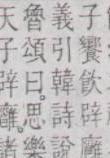 子饗飲辟廱
義引韓詩說
魯頌曰思樂
天子辟廱諸